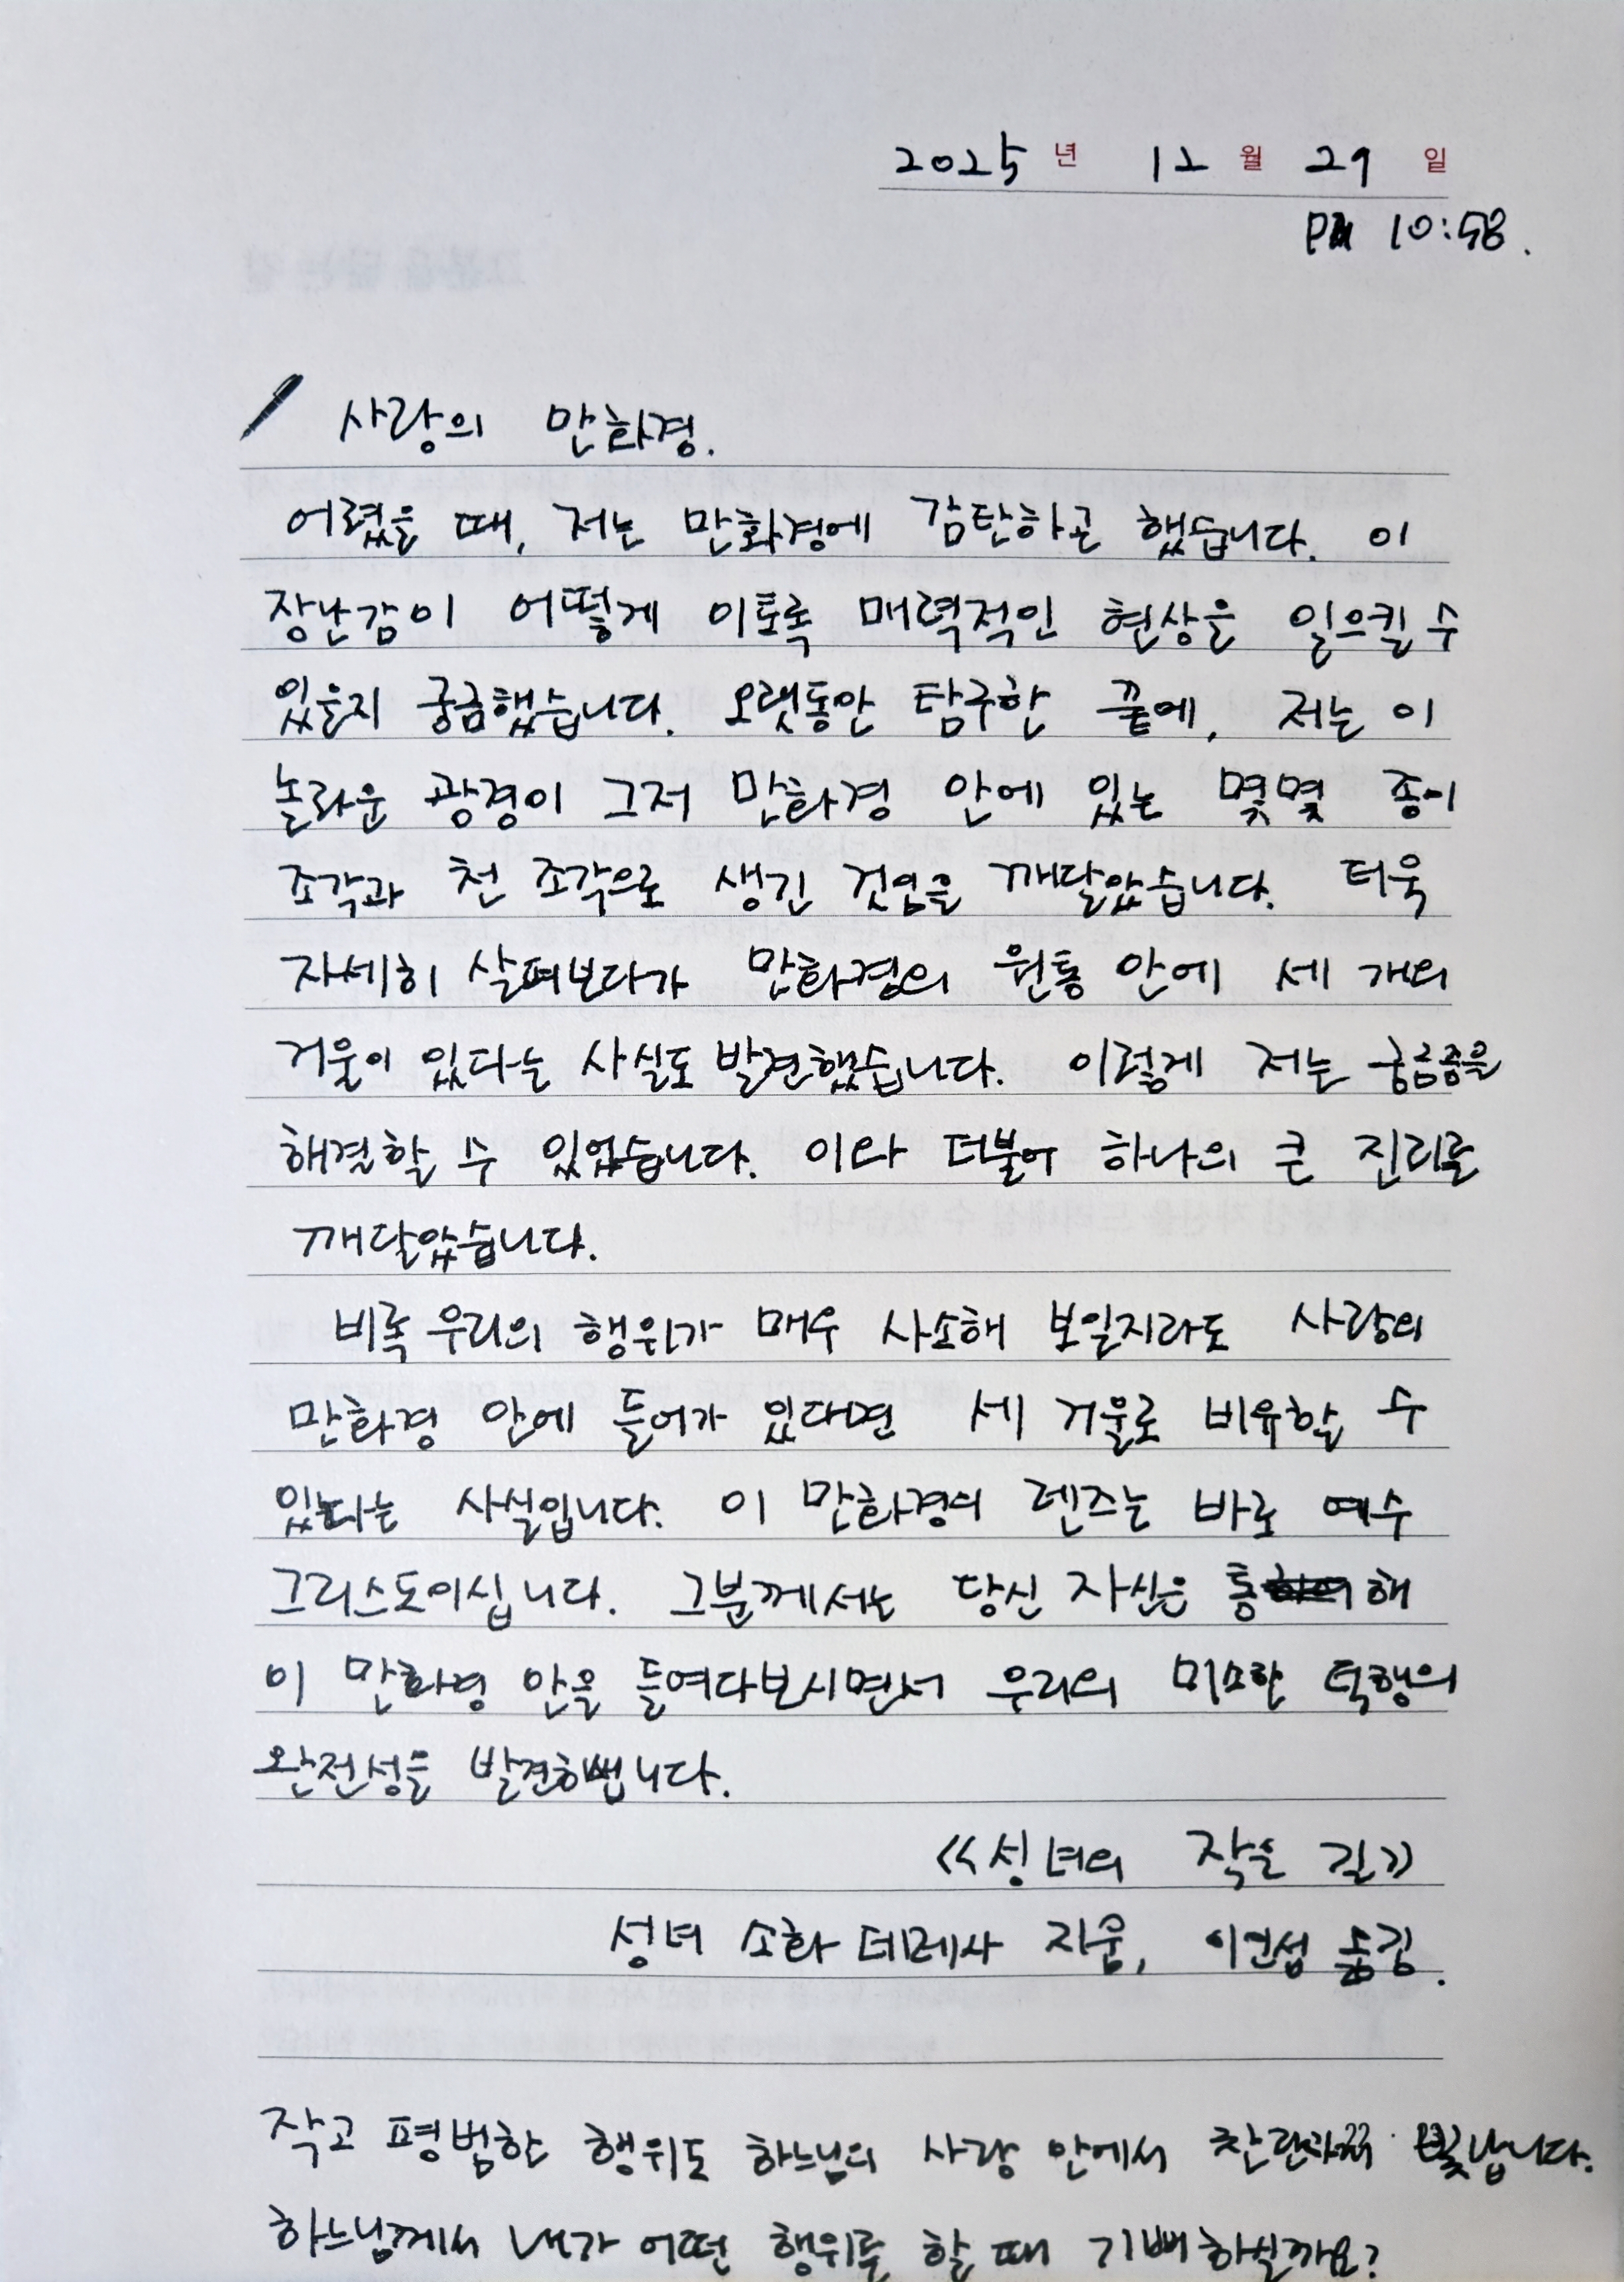 2025년 12월 29일
PM 10:58.
사랑의 만화경.
어렸을 때, 저는 만화경에 감탄하곤 했습니다. 이
장난감이 어떻게 이토록 매력적인 현상을 일으킬 수
있을지 궁금했습니다. 오랫동안 탐구한 끝에, 저는 이
놀라운 광경이 그저 만화경 안에 있는 몇몇 종이
조각과 천 조각으로 생긴 것임을 깨달았습니다. 더욱
자세히 살펴보다가 만화경의 원통 안에 세 개의
거울이 있다는 사실도 발견했습니다. 이렇게 저는 궁금증을
해결할 수 있었습니다. 이와 더불어 하나의 큰 진리를
깨달았습니다.
비록 우리의 행위가 매우 사소해 보일지라도 사랑의
만화경 안에 들어가 있다면 세 거울로 비유할 수
있다는 사실입니다. 이 만화경의 렌즈는 바로 예수
그리스도이십니다. 그분께서는 당신 자신은 통해
이 만화경 안을 들여다보시면서 우리의 미소한 덕행의
완전성을 발견하십니다.
《성녀의 작은 길》
성녀 소화 데레사 지음, 이인섭 옮김.
작고 평범한 행위도 하느님의 사랑 안에서 찬란하게 빛납니다.
하느님께서 내가 어떤 행위를 할 때 기뻐하실까요?